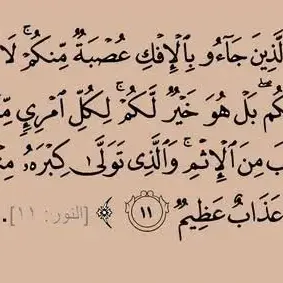 لَّذِينَ جَآءُو بِٱلْإِفْكِ عُصْبَةٌ مِّنكُمْ ۚ لَا
كُم ۖ بَلْ هُوَ خَيْرٌ لَّكُمْ ۚ لِكُلِّ ٱمْرِئٍ مِّ
بَ مِنَ ٱلْإِثْمِ ۚ وَٱلَّذِى تَوَلَّىٰ كِبْرَهُۥ مِنْ
عَذَابٌ عَظِيمٌ ١١ ﴾ [النور: ١١].